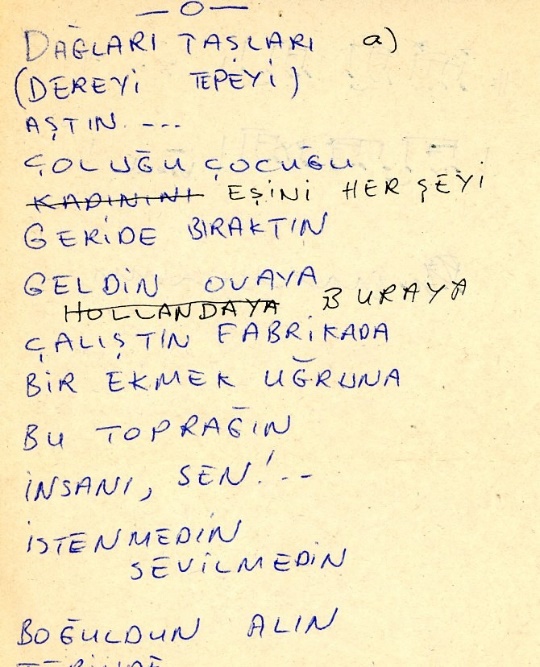 —O—
DAĞLARI TAŞLARI a)
(DEREYİ TEPEYİ)
AŞTIN ---
ÇOLUĞU ÇOCUĞU
KADININI EŞİNİ HER ŞEYİ
GERİDE BIRAKTIN
GELDİN OVAYA
HOLLANDAYA BURAYA
ÇALIŞTIN FABRİKADA
BİR EKMEK UĞRUNA
BU TOPRAĞIN
İNSANI, SEN!--
İSTENMEDİN
SEVİLMEDİN
BOĞULDUN ALIN